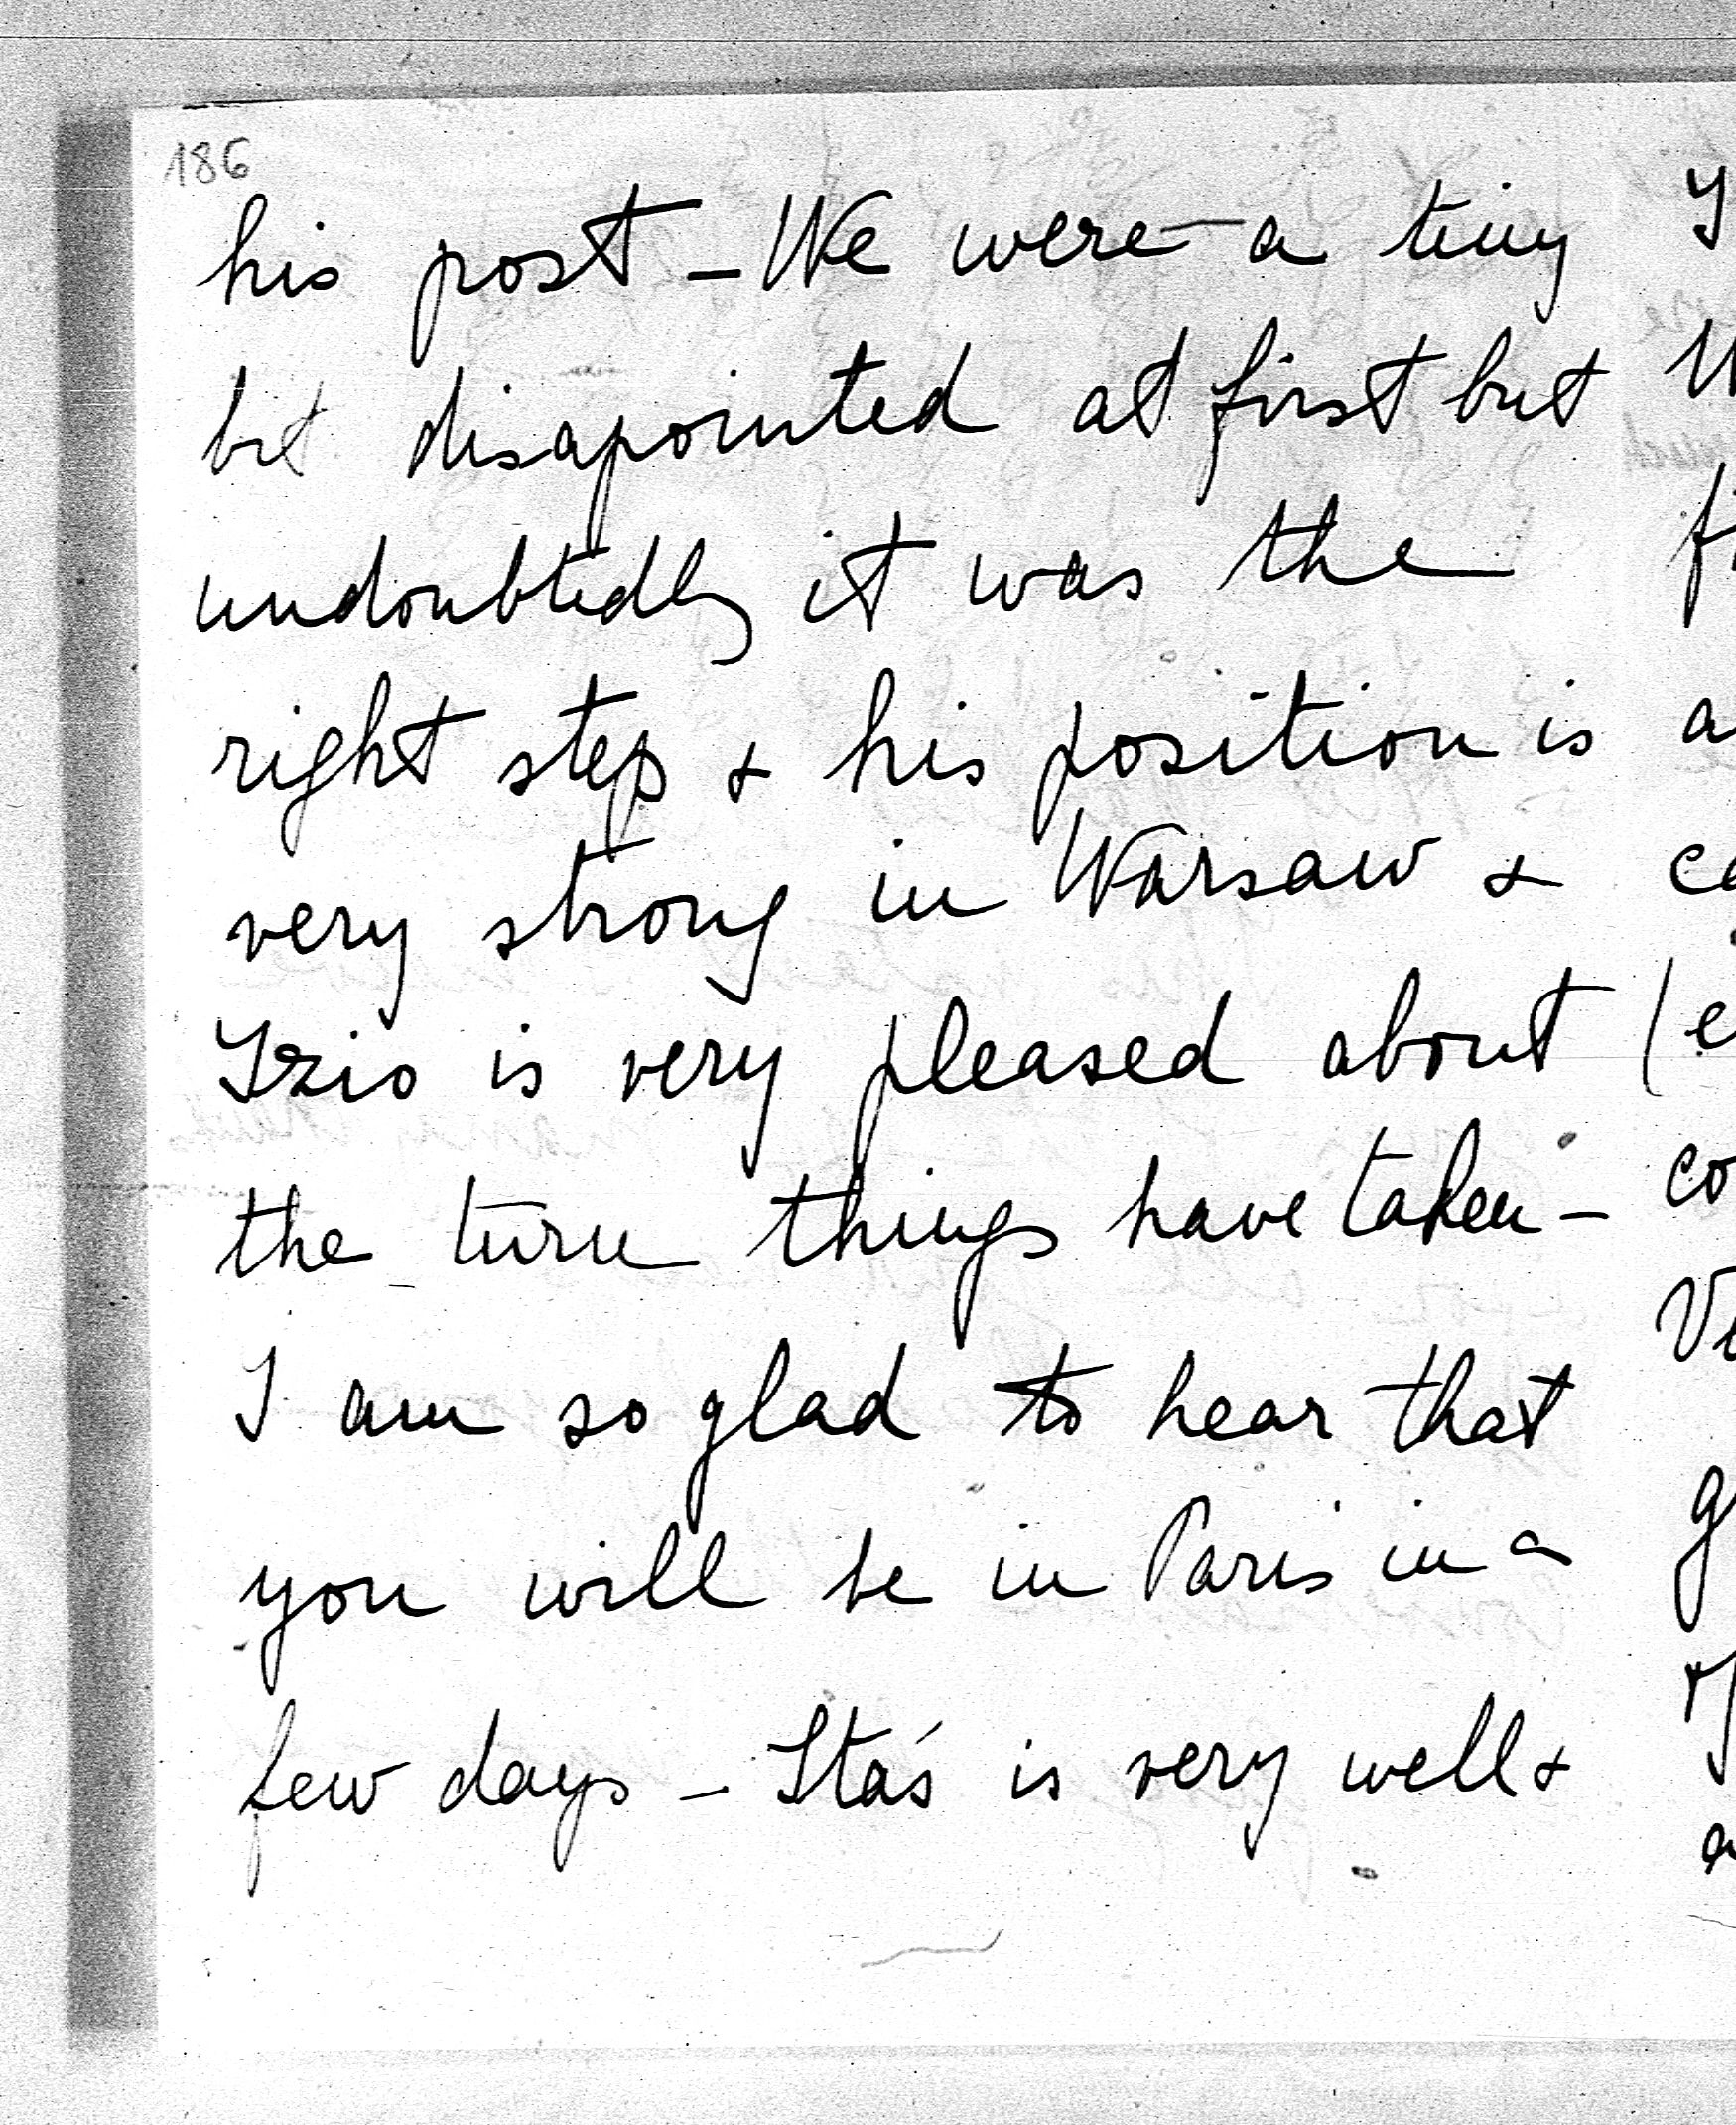 186
his post – We were a tiny
bit disapointed at first but
undoubtedly it was the
right step & his position is
very strong in Warsaw &
Izio is very pleased about
the turn things have taken –
I am so glad to hear that
you will be in Paris in a
few days – Staś is very well &